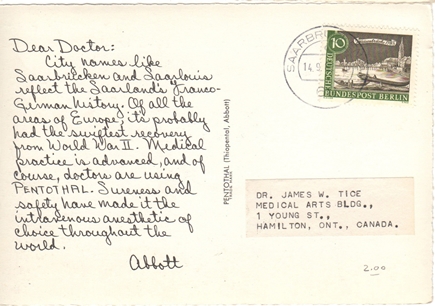 Dear Doctor:
City names like
Saarbrücken and Saarlouis
reflect the Saarland's Franco-
German history. Of all the
areas of Europe, it's probably
had the swiftest recovery
from World War II. Medical
practice is advanced, and, of
course, doctors are using
PENTOTHAL. Sureness and
safety have made it the
intravenous anesthetic of
choice throughout the
world.
Abbott
PENTOTHAL (Thiopental, Abbott)
SAARBRÜ
14.9.
10
DEUTSCHE
BUNDESPOST BERLIN
DR. JAMES W. TICE
MEDICAL ARTS BLDG.,
1 YOUNG ST.,
HAMILTON, ONT., CANADA.
2.00